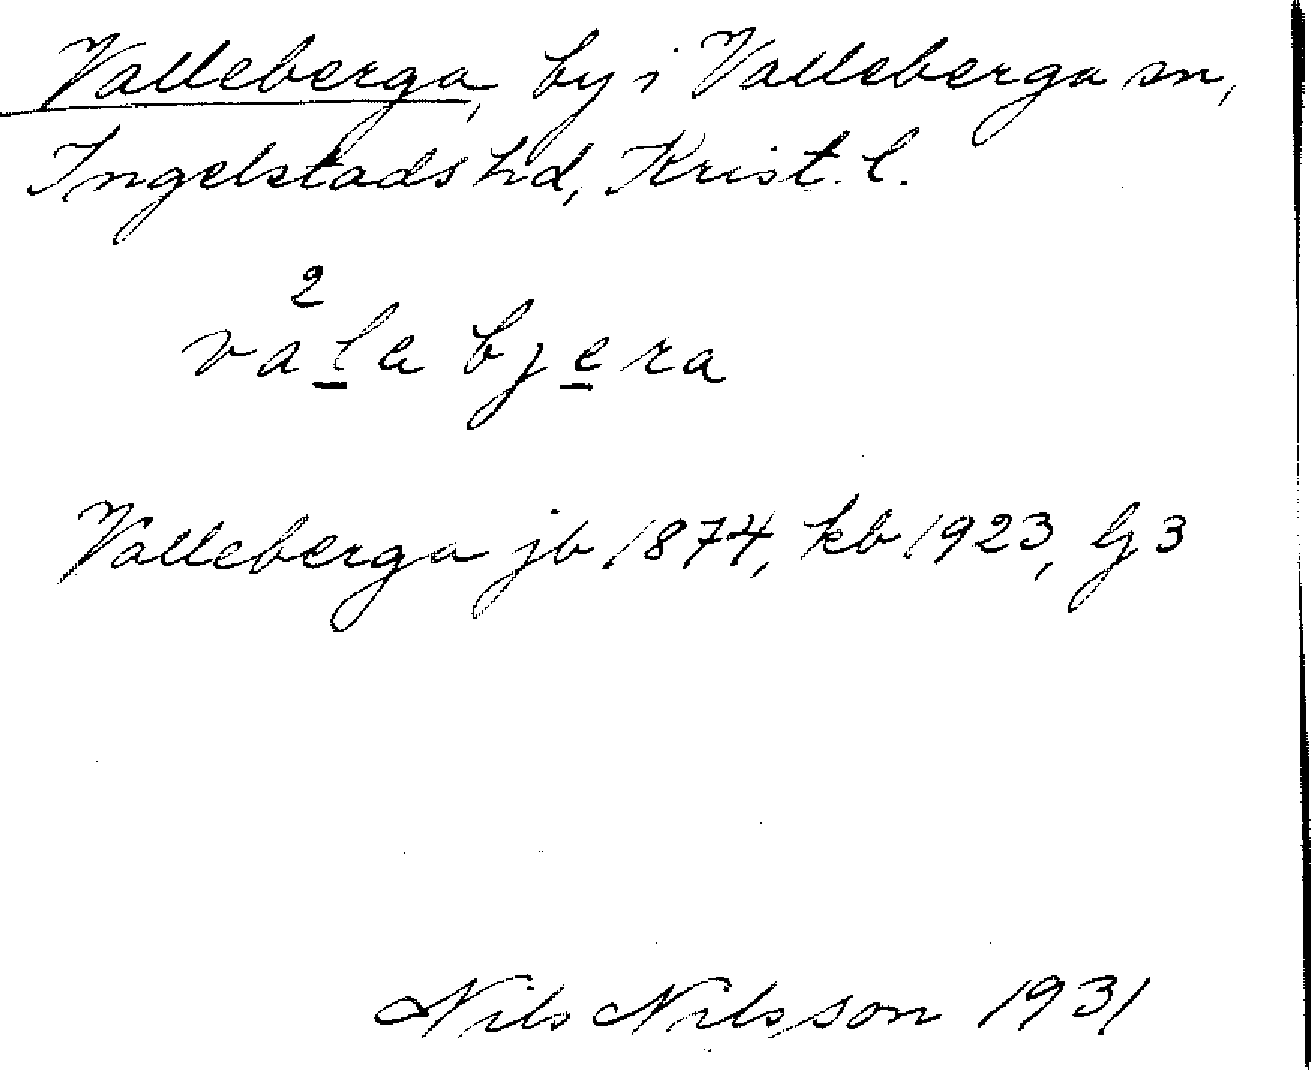 Valleberga, by i Valleberga sn,
Ingelstads hd, Krist. l.
2
va̱la bje̱ra
Valleberga jb 1874, kb 1923, Gj 3
Nils Nilsson 1931